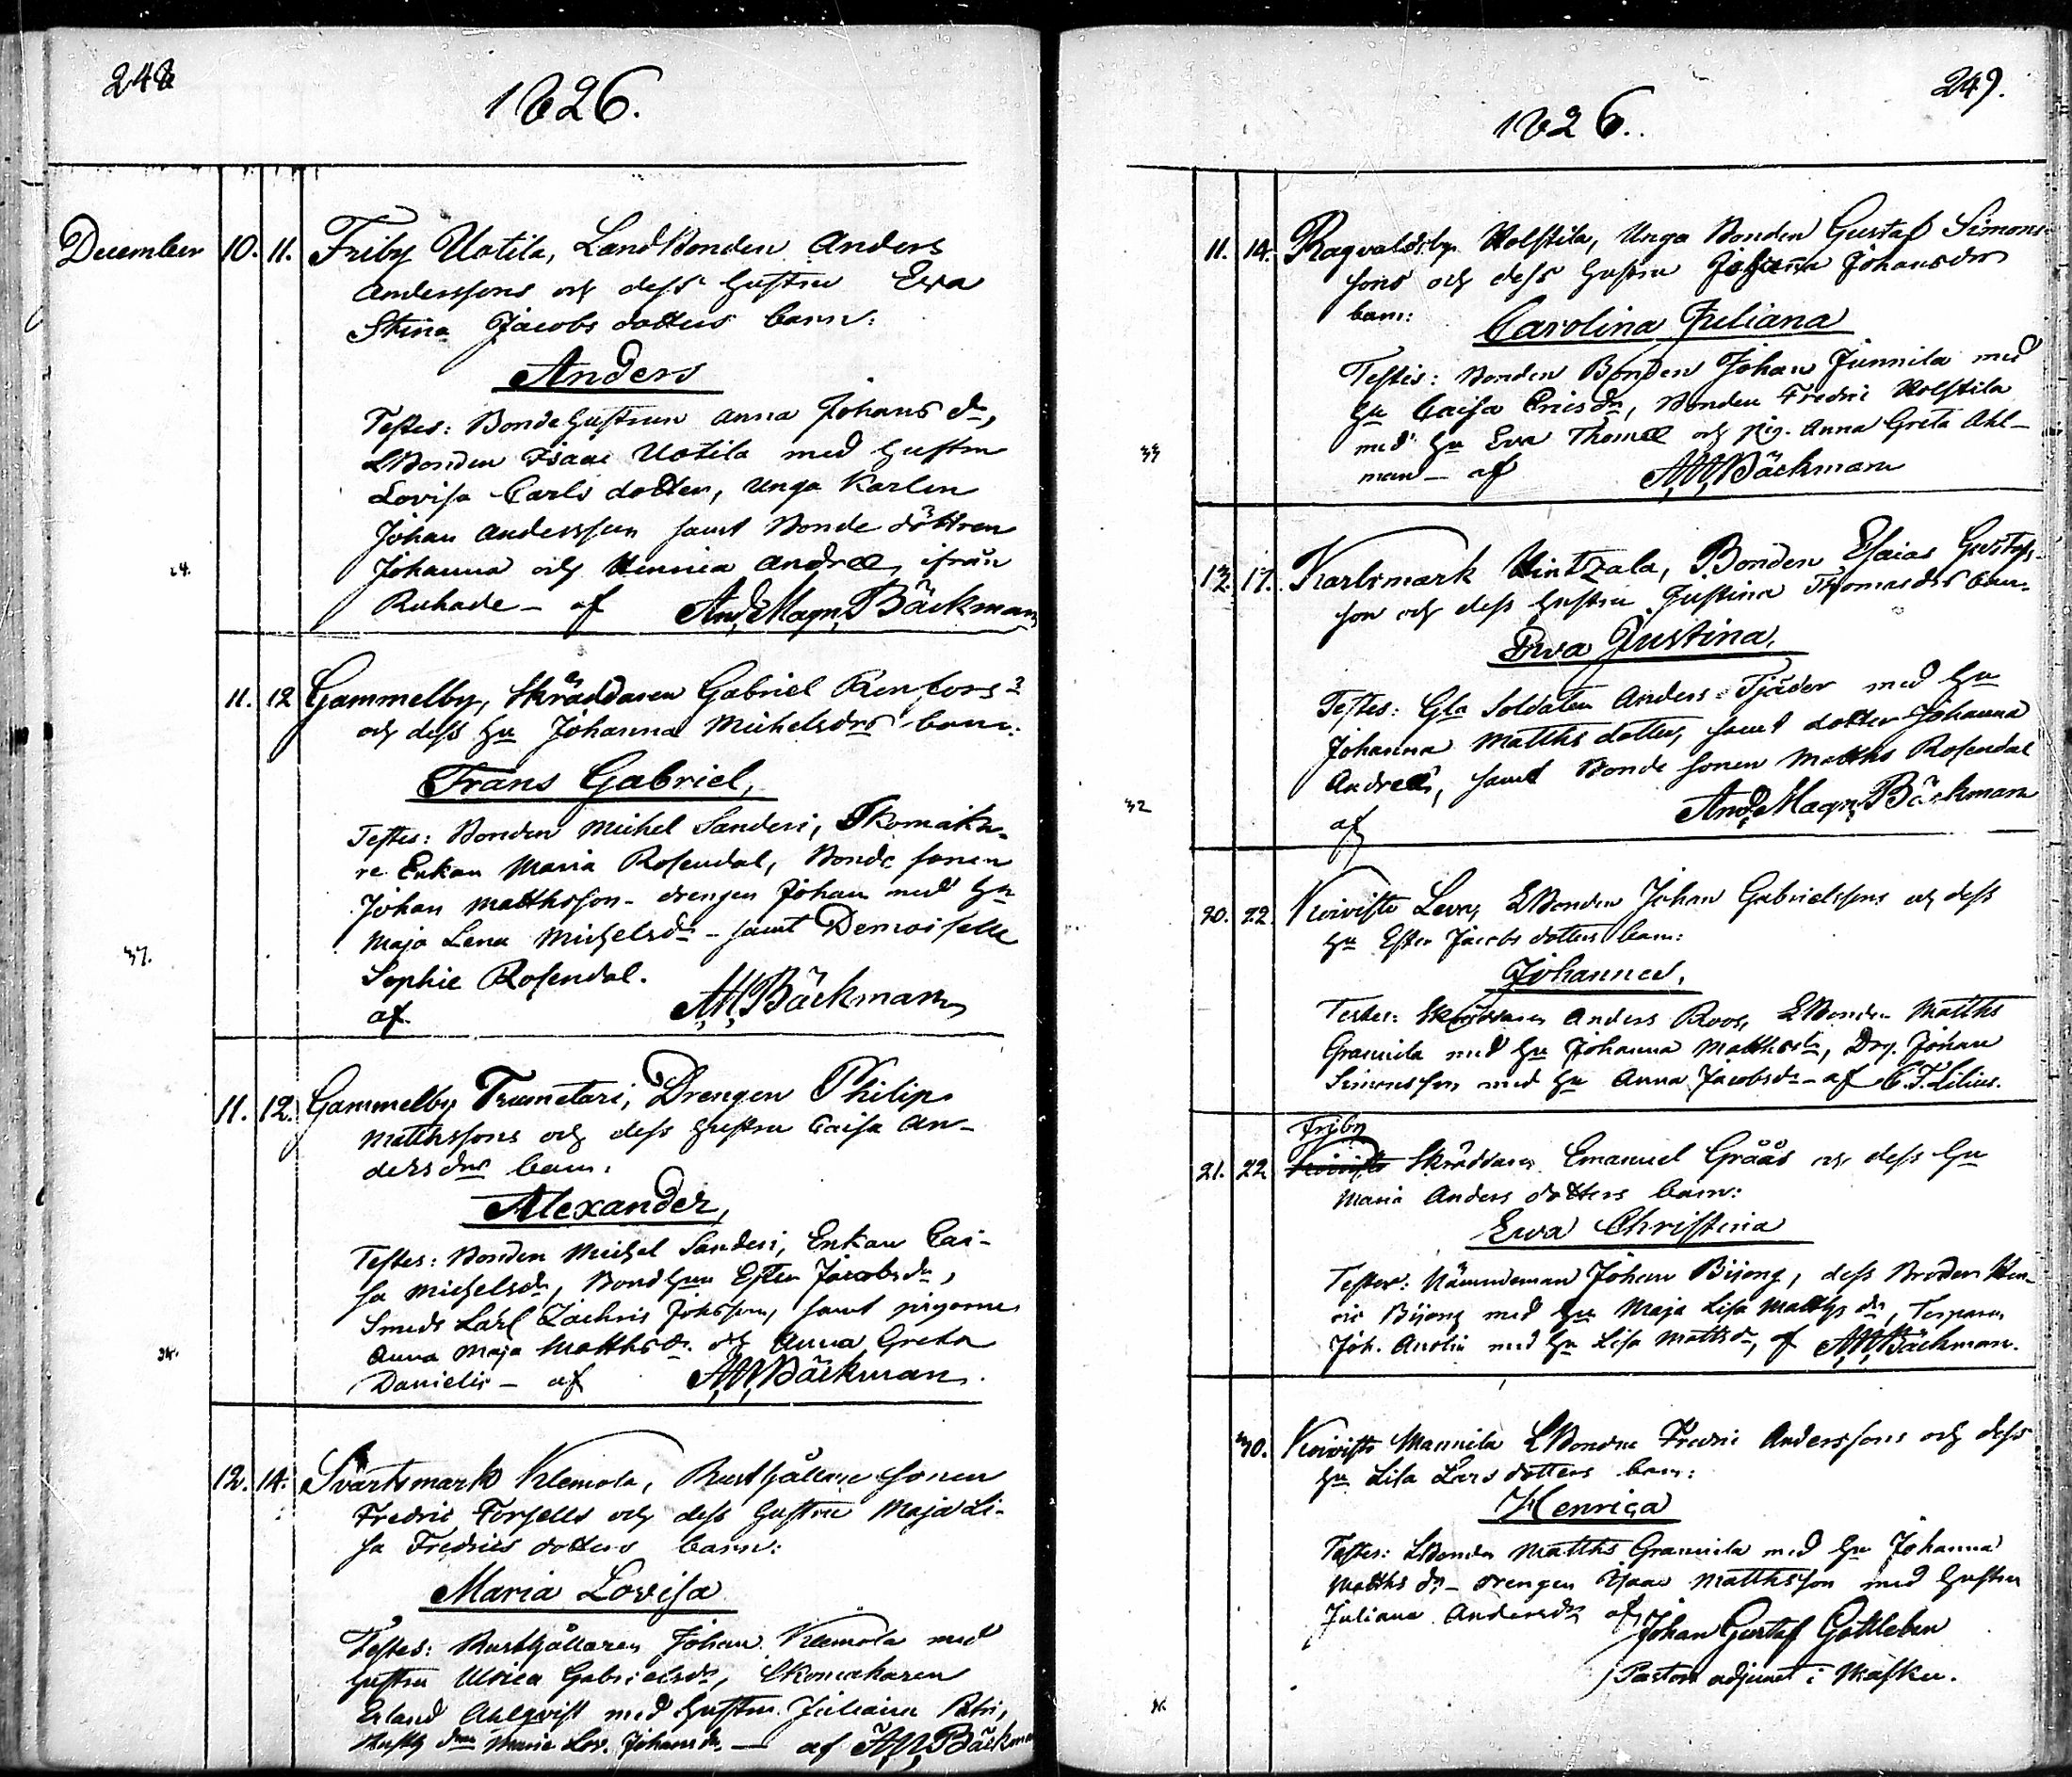 248
1826.
December 10. 11. Friby Uotila, LandBonden Anders
Anderssons och dess hustru Eva
Stina Jacobs dotters barn:
Anders
Testes: Bondehustrun Anna Johans dr,
LBonden Isaac Uotila med hustru
Lovisa Carls dotter, unga Karlen
Johan Andersson samt Bonde döttren
24. Johanna och Henrica Andreæ, ifrån
Ruhade – af And. Magn. Bäckman
11. 12 Gammelby, Skräddaren Gabriel Renfors
och dess hu Johanna Michelsdrs barn:
Frans Gabriel,
Testes: Bonden Michel Sanderi, Skomaka-
re Enkan Maria Rosendal, Bonde sonen
Johan Matthsson – drengen Johan med hu
Maja Lena Michelsdr – samt Demoiselle
37. Sophie Rosendal.
af A,M,Bäckman
11. 12. Gammelby Trumetari, Drengen Philip
Matthssons och dess hustru Caisa An-
ders drs barn:
Alexander,
Testes: Bonden Michel Sanderi, Enkan Cai-
sa Michelsdr, Bondhun Ester Jacobsdr,
Smeds Lärl Zachris Johsson, samt pigorne
Anna Maja Matthsdr. och Anna Greta
Danielis – af A,M,Bäckman.
12. 14. Svartsmark Klemola, Rusthållare sonen
Fredric Forsells och dess hustru Maja Li-
sa Fredrics dotters barn:
Maria Lovisa
Testes: Rusthållaren Johan Klemola med
hustru Ulrica Gabrielsdr, Skomakaren
Erland Ahlqvist med hustru Juliana
Maria Lov. Johansdr. — af A,M,Bäckman
249.
1826.
11. 14. Ragvaldsby Holstila, Unga Bonden Gustaf Simons-
sons och dess hustru Johanna Johansdrs
barn: Carolina Juliana
Testis: Bonden Johan Junnila med
hu Caisa Ericsdr, Bonden Fredric Holstila
33 med hu Eva Thomæ och pig. Anna Greta Ahl-
man – af A,M,Bäckman
13. 17. Karlsmark Hintzala, Bonden Esaias Gustafs-
son och dess hustru Justina Thomasdrs barn.
Ewa Justina,
Testes: Gla Soldaten Anders Tjäder med hu
Johanna Matths dotter, samt dotter Johanna
Andreæ, samt Bonde sonen Matths Rosendal
32 af And. Magn. Bäckman
20. 22 Koivisto Levä, LBonden Johan Gabrielssons och dess
hu Ester Jacobs dotters barn:
Johannes.
Testes: Skräddaren Anders Roos, LBonden Matths
Grannila med hu Johanna Matthsdr, Drg. Johan
Simonsson med hu Anna Jacobsdr – af C.F.Lilius.
Friby
21. 22 Koivisto Skräddaren Emanuel Gråås och dess hu
Maria Anders dotters barn:
Ewa Christina
Testes: Nämndeman Johan Bijong, dess Broder Hen-
ric Bijong med hu Maja Lisa Matths dr, Torparen
Joh. Anolin med hu Lisa Mattsdr, af A,M,Bäckman.
30. Koivisto Mannila LBonden Fredric Anderssons och dess
hu Lisa Lars dotters barn:
Henrica
Testes: LBonden Matths Grannila med hu Johanna
Matths dr – drengen Isaac Matthsson med hustru
Juliana Andersdr af Johan Gustaf Gottleben
Pastors adjunct i Masku.